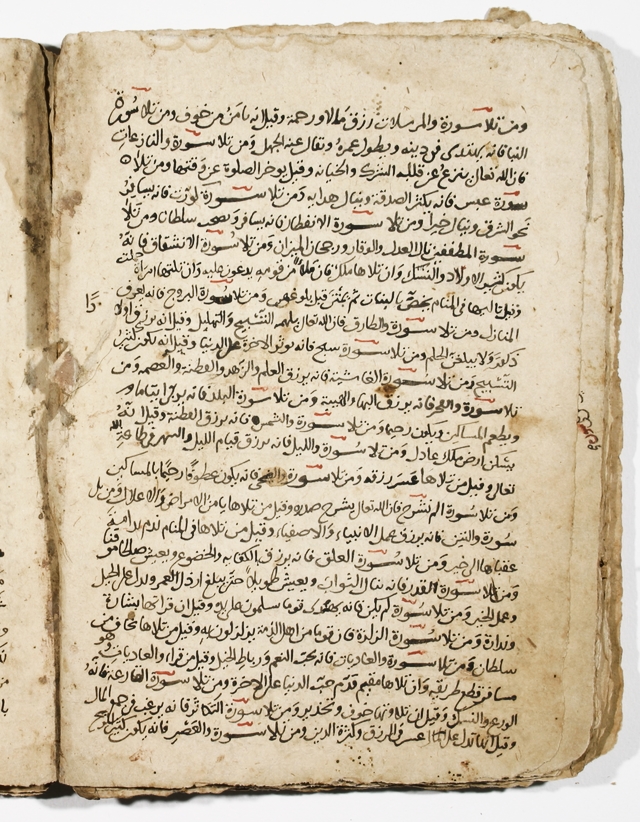 ومن تلا سورة والمرسلات رزق مالا ورحمة وقيل انه يامن من خوف ومن تلا سورة
النبا فانه يقتدى في دينه ويطول عمره وتقال عنه الجهل ومن تلا سورة والنازعات
فان الله تعالى ينزع عن قلبه الشرك والخيانه وقيل يوخر الصلوة عن وقتها ومن تلا
سورة عبس فانه يكثر الصدقة وينال هدايه ومن تلا سورة كورت فانه يسافر
نحو الشرق وينال خيرا ومن تلا سورة الانفطار فانه يسافر سلطان ومن تلا
سورة المطففين نال العدل والوقار ورجحان الميزان ومن تلا سورة الانشقاق فانه
يكون كثير الاولاد والنسل وان تلاها ملك فان من قومه يدعون عليه وان تلتها امراة
ومن تلا سورة البروج فانه يعرف
المنازل ومن تلا سورة والطارق فان الله تعالى يلهمه التسبيح والتهليل وقيل انه يرزق اولادا
ومن تلا سورة سبح فانه يوثر الاخرة على الدنيا وقيل انه يكون كثير
التسبيح ومن تلا سورة الغاشيه فانه يرزق العلم والزهد والفطنه والعصمه ومن
تلا سورة والفجر فانه يرزق البهاء والهيبة ومن تلا سورة البلد فانه يربى ايتاما
ويطعم المساكين ويكون رحيما ومن تلا سورة والشمس فانه يرزق الفطنة وقيل انه
يسكن ارض ملك عادل ومن تلا سورة والليل فانه يرزق قيام الليل والسهر في طاعة الله
تعالى وقيل من تلاها عسر رزقه ومن تلا سورة والضحى فانه يكون عطوفا رحيما بالمساكين
ومن تلا سورة الم نشرح فان الله تعالى يشرح صدره وقيل من تلاها يامن الامراض والاعلال ومن تلا
سورة والتين فانه يرزق عمل الانبياء والاصفياء وقيل من تلاها في المنام ندم ندامة
عقباها الى خير ومن تلا سورة العلق فانه يرزق الكتابه والخضوع ويعيش
ومن تلا سورة القدر فانه ينال الثواب ويعيش طويلا حتى يبلغ ارذل العمر ويدل على الجبل
وعمل الخير ومن تلا سورة لم يكن فانه يهدى قوما يسلمون على يديه وقيل ان قراتها بشارة
ونذارة ومن تلا سورة الزلزلة فان قوما من اهل الذمة يزلزلون به وقيل من تلاها خاف من
سلطان ومن تلا سورة والعاديات فانه يحب النعم ورباط الخيل وقيل من قراء والعاديات وهو
مسافر قطع طريقه وان تلاها مقيم قدم حب الدنيا على الاخرة ومن تلا سورة القارعة فانه
الورع والنسك وقيل ان تلاوتها خوف وتحذير ومن تلا سورة التكاثر فانه يرغب في جمع المال
وقيل انها تدل على عسر في الرزق وكثرة الدين ومن تلا سورة والعصر فانه يكون كثير